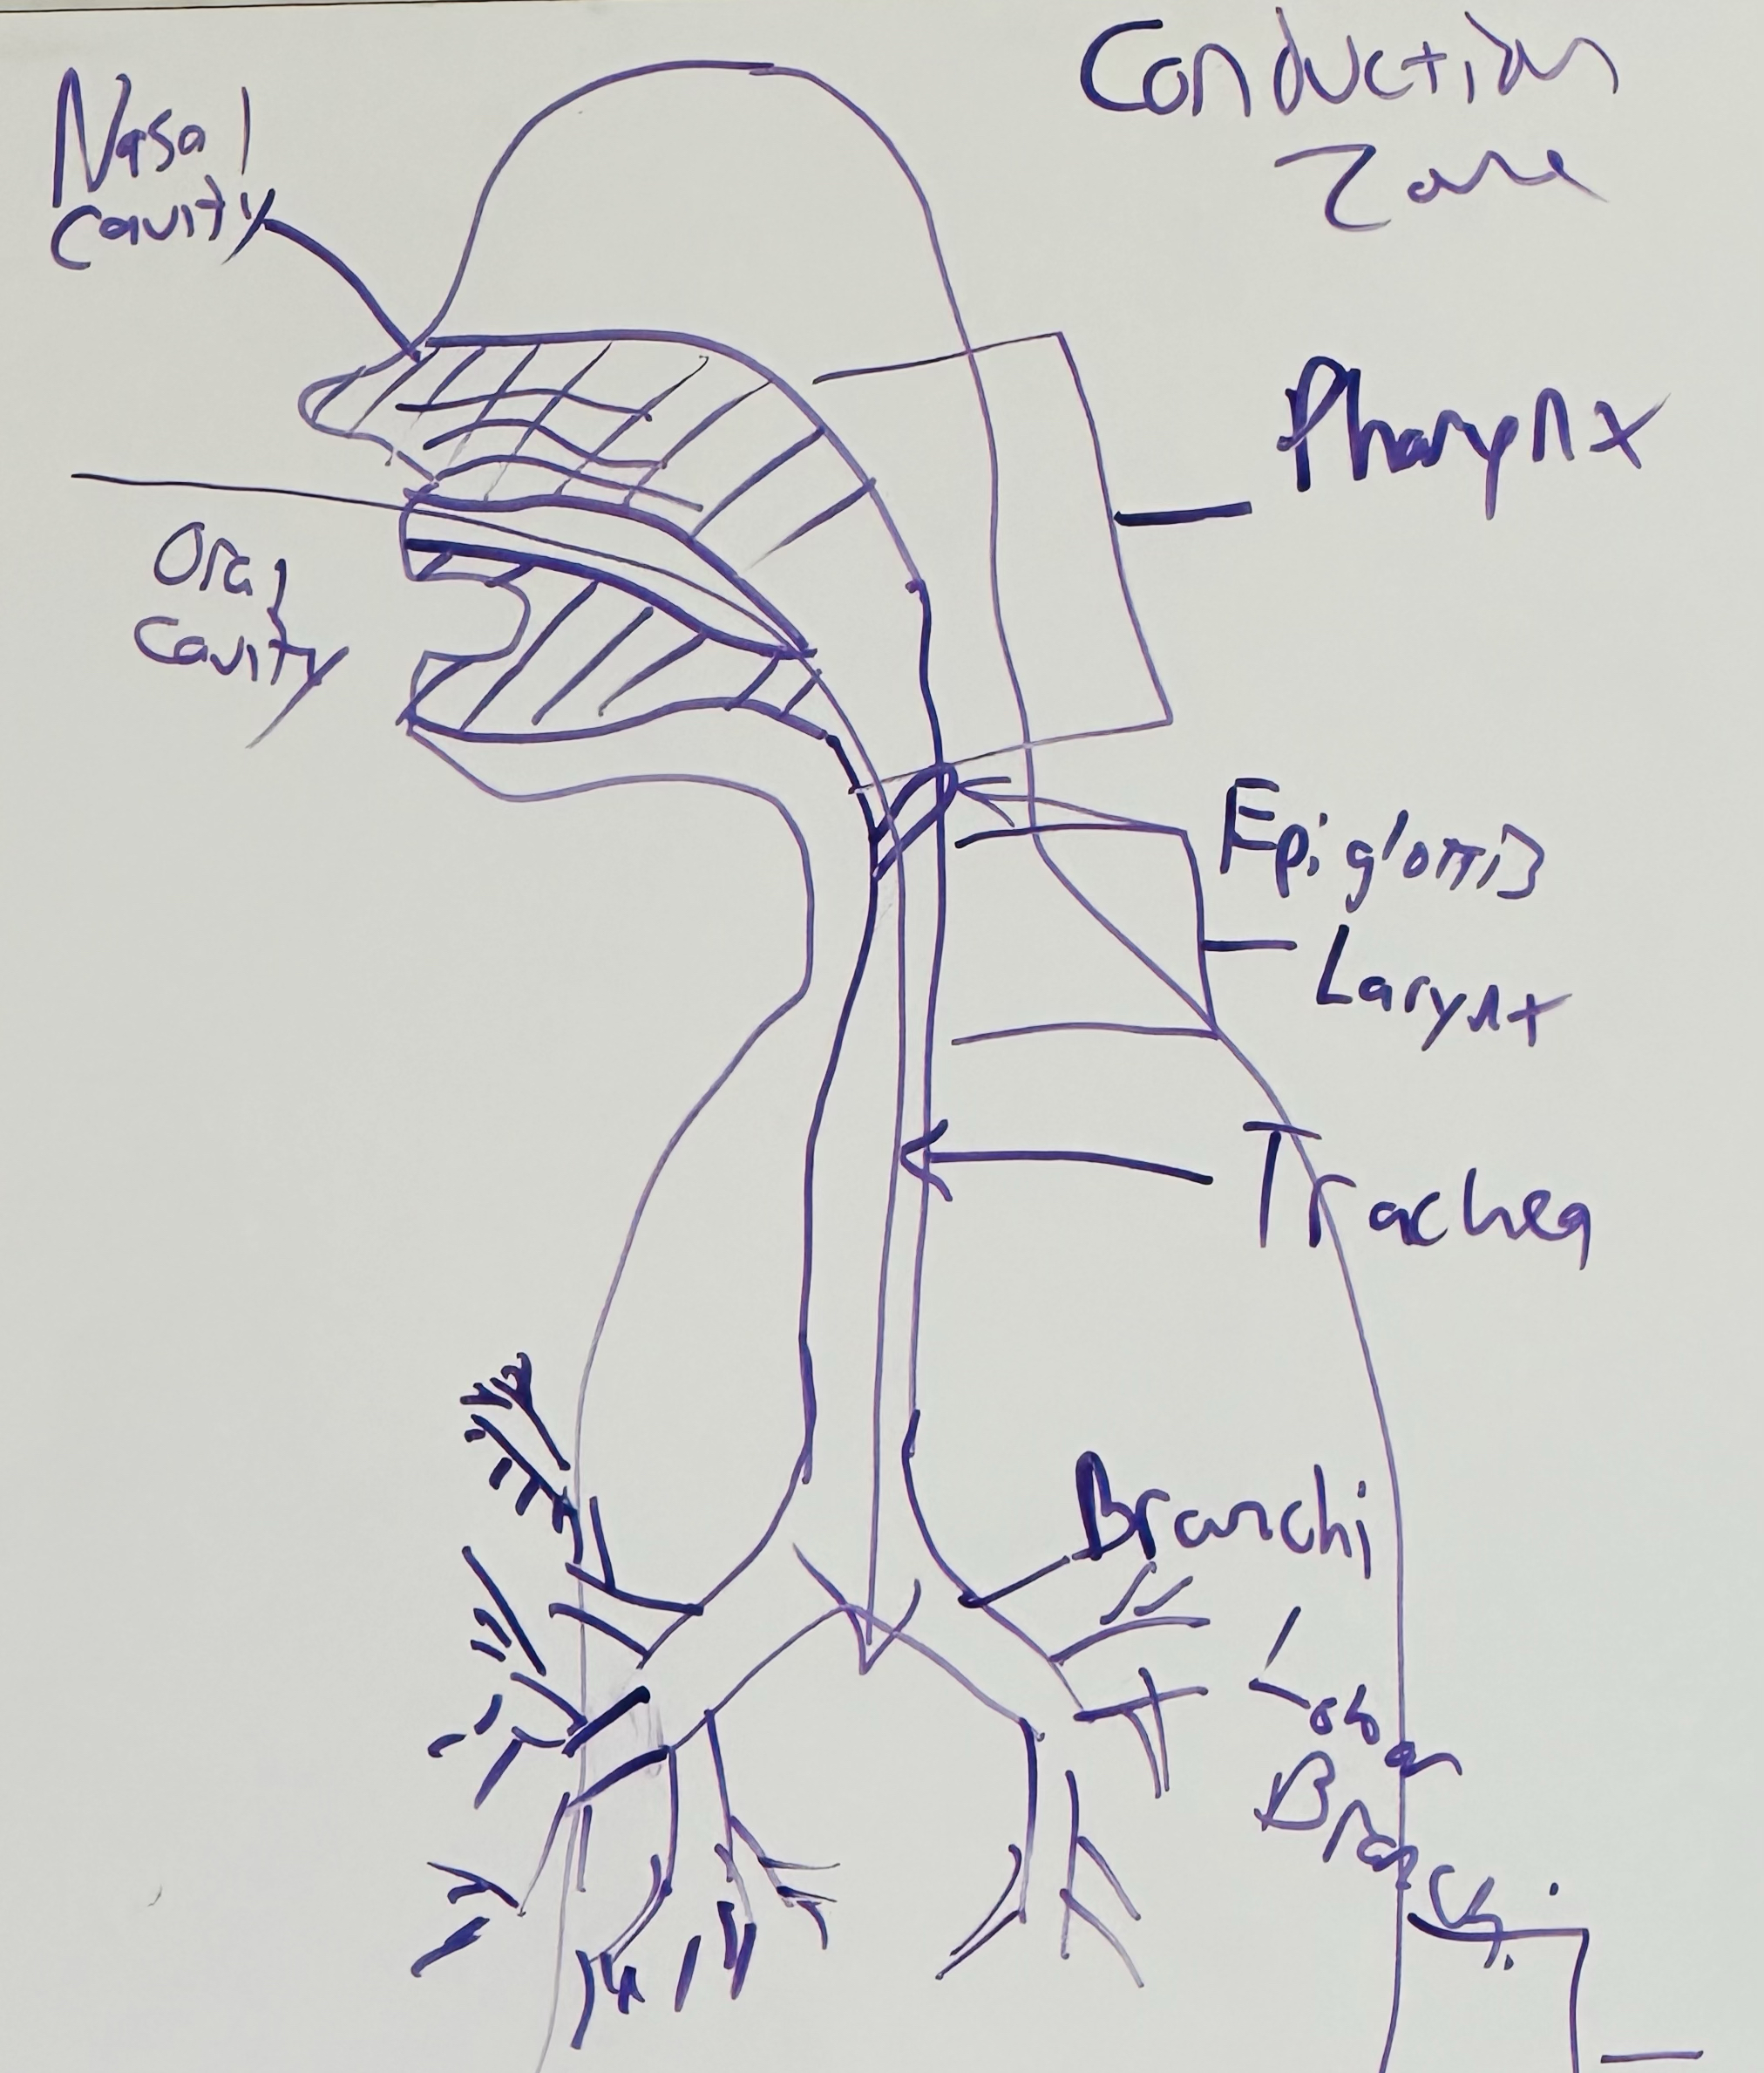 Conduction
Zone
Nasal
Cavity
Pharynx
Oral
Cavity
Epiglottis
Larynx
Trachea
Bronchi
Lobar
Bronchi